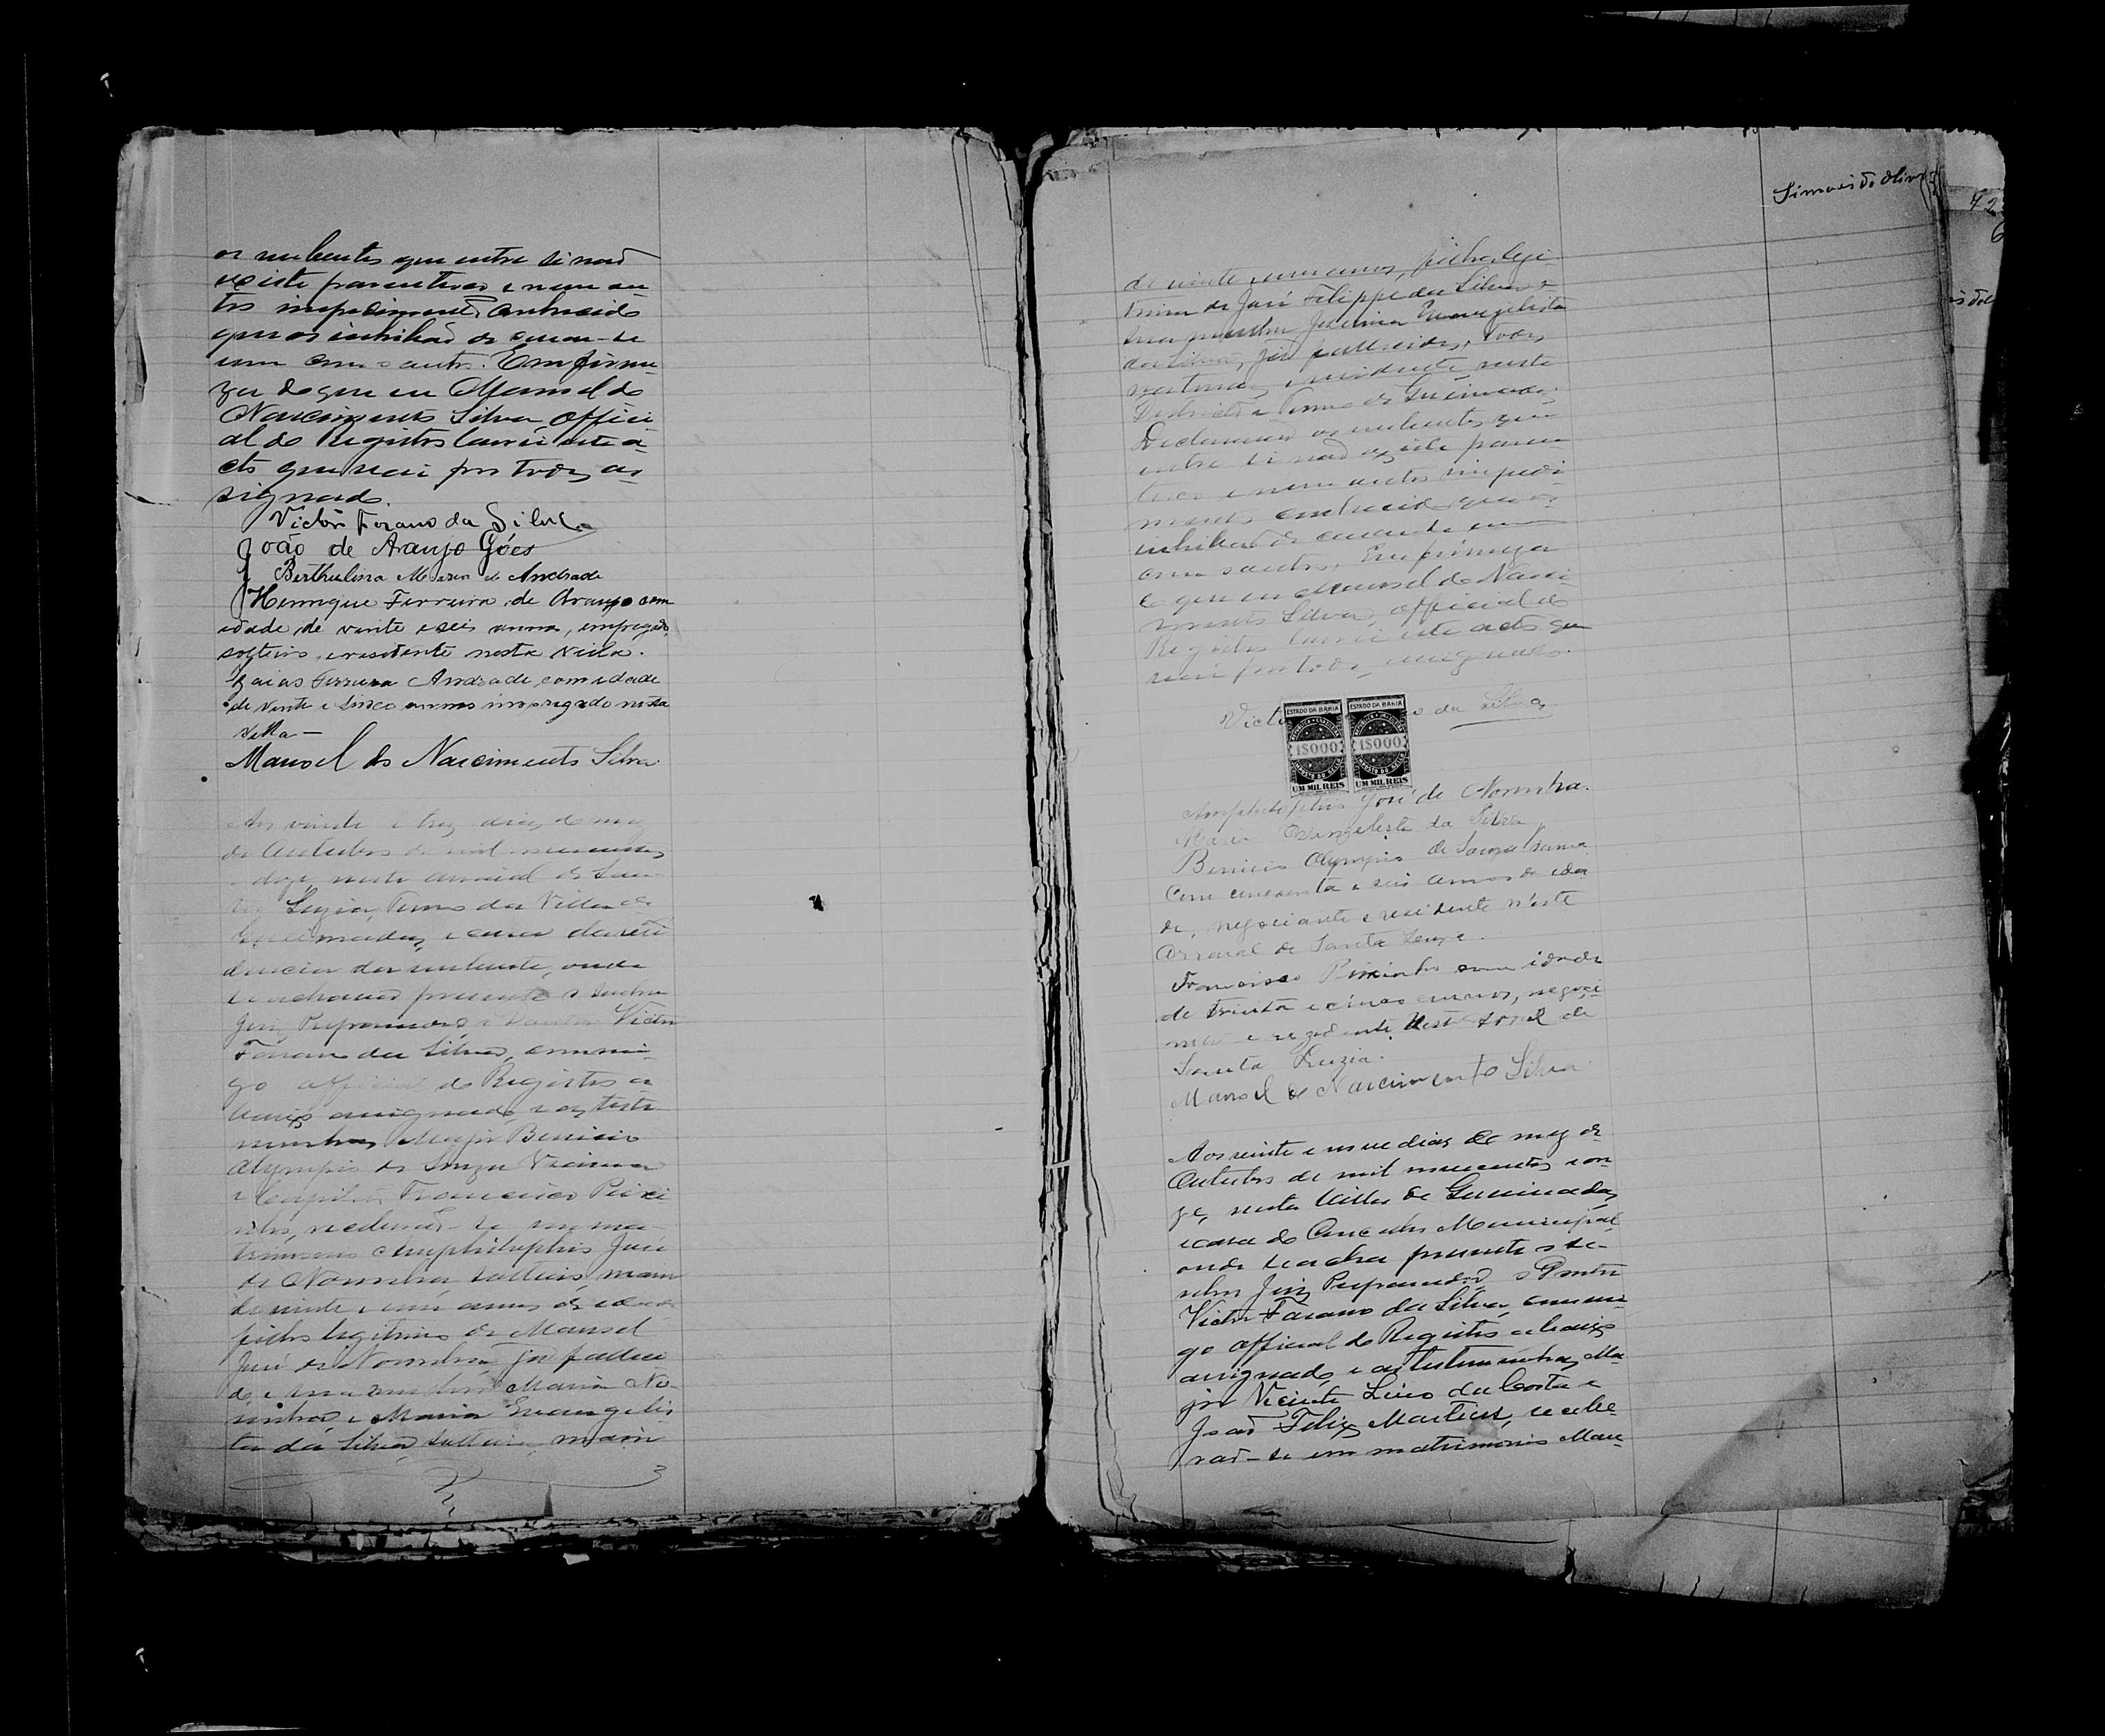 os nubentes que entre si naõ
existe parentesco e nem ou
tro impedimento conhecido
que os inhibaõ de cazar-se
um com o outro. Em firme
za do que eu Manoel do
Nascimento Silva, offici
al do registro lavrei este a-
cto que vai por todos as
signado.
Victor Farano da Silva
João de Araujo Góes
Berthulina Maria de Andrade
Henrique Ferreira de Araujo com
edade de vinte e seis annos, empregado,
solteiro, e residente nesta villa.
Ferreira Andrade, com idade
de vinte e sinco annos impregado nesta
villa —
Manoel do Nascimento Silva.
Aos vinte e trez dias do mez
de Outubro de mil novecentos
e doze, neste arraial de San
ta Luzia, Termo da Villa de
Queimadas, e casa da resi
dencia da nubente, onde
se achavaõ presente o Senhor
Juiz Preparador o Doutor Victor
Farano da Silva, commi-
go official do Registro a
baixo assignado, e as teste-
munhas Major Benicio
Olympio de Souza Vianna
e Capitaõ Francisco Peixi
nho, receberaõ-se em ma-
trimonio Amphilophio José
de Noronha, solteiro, maior
de vinte e um annos de edade
filho legitimo de Manoel
José de Noronha, já falleci
do, e sua mulher Maria No-
ronha e Maria Evangelis
ta da Silva, solteira, maior
Simoes de Oliv
42
de vinte e um annos, filha legi
tima de José Filippe da Silva e
sua mulher Jesuina Evangelista
da Silva, já fallecidos, todos
naturaes e residente neste
Districto e Termo de Queimadas.
Declararaõ os nubentes que
entre si naõ existe paren
tesco e nem outro impedi
mento conhecido que os
inhibaõ de cazar-se um
com o outro. Em firmeza
do que eu Manoel do Nasci
mento Silva, official do
Registro lavrei este acto que
vai por todos assignado.
Victo o da Silva
ESTADO DA BAHIA
1$000
UM MIL REIS
ESTADO DA BAHIA
1$000
UM MIL REIS
Amphilophio José de Noronha.
Maria Evangelista da Silva
Benicio Olympio de Souza Vianna
Com cincoenta e seis annos de ida
de, negociante e residente n'este
arraial de Santa Luzia.
Francisco Peixinho com idade
de trinta e cinco annos, negoci
e rezidente Neste de
Santa Luzia.
Manoel do Nascimento Silva
Aos vinte e nove dias do mez de
Outubro de mil novecentos e on
ze, nesta Villa de Queimadas,
e casa do Concelho Municipal
onde se achava presente o Se-
nhor Juiz Preparador, o Doutor
Victor Farano da Silva, commi
go official do Registro abaixo
assignado, e as testemunhas Ma-
jor Vicente Lino da Costa e
Joaõ Felix Martins, recebe-
raõ-se em matrimonio Man